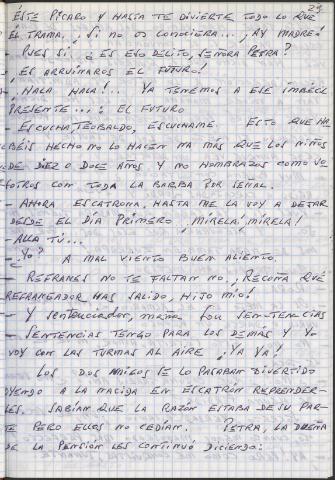 29
ÉSTE PÍCARO Y HASTA TE DIVIERTE TODO LO QUE
ÉL TRAMA. ¡SI NO OS CONOCIERA...! ¡AY MADRE!
- PUES SÍ. ¿ES ESO DELITO, SEÑORA PETRA?
- ES ARRUINAROS EL FUTURO!
- ¡HALA HALA!.. YA TENEMOS A ESE IMBÉCIL
PRESENTE...: EL FUTURO
- ESCUCHA, TEOBALDO, ESCÚCHAME ESTO QUE HA-
BÉIS HECHO NO LO HACEN NA MÁS QUE LOS NIÑOS
DE DIEZ O DOCE AÑOS Y NO HOMBRAZOS COMO VO-
SOTROS CON TODA LA BARBA POR SEÑAL.
- AHORA ESCATRONA, HASTA ME LA VOY A DEJAR
DESDE EL DÍA PRIMERO ¡MÍRELA! ¡MÍRELA!
- ALLÁ TÚ...
- ¿YO? A MAL VIENTO BUEN ALIENTO.
- REFRANES NO TE FALTAN NO. ¡RECOÑA QUÉ
REFRANEADOR HAS SALIDO, HIJO MÍO!
- Y sentenciador, SENTENCIAS
- SENTENCIAS TENGO PARA LOS DEMÁS Y YO
VOY CON LAS TURMAS AL AIRE ¡YA YA!
LOS DOS AMIGOS SE LO PASABAN DIVERTIDO
OYENDO A LA NACIDA EN ESCATRÓN REPRENDER-
LES. SABÍAN QUE LA RAZÓN ESTABA DE SU PAR-
TE PERO ELLOS NO CEDÍAN. PETRA, LA DUEÑA
DE LA PENSIÓN LES CONTINUÓ DICIENDO: